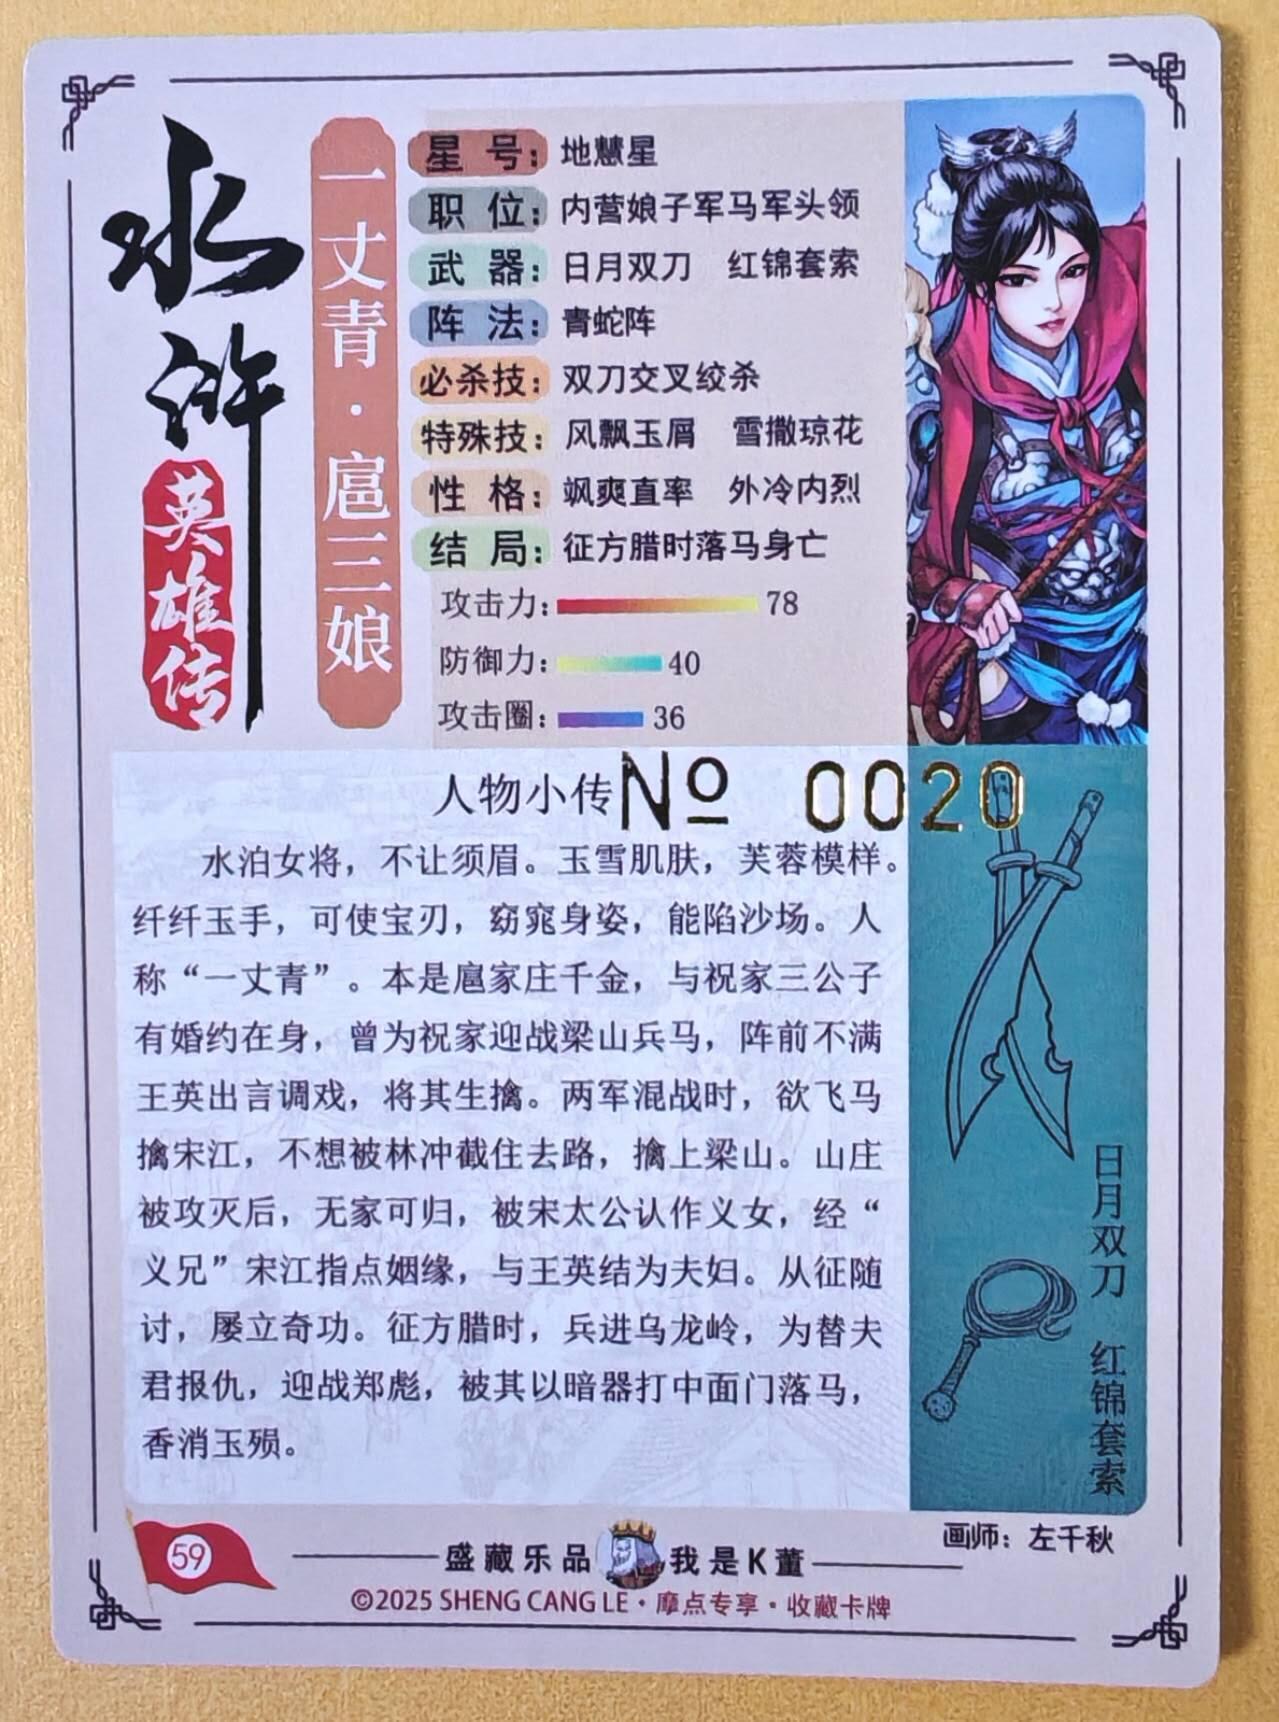 水浒
英雄传
一丈青·扈三娘
星号：地慧星
职位：内营娘子军马军头领
武器：日月双刀 红锦套索
阵法：青蛇阵
必杀技：双刀交叉绞杀
特殊技：风飘玉屑 雪撒琼花
性格：飒爽直率 外冷内烈
结局：征方腊时落马身亡
攻击力：78
防御力：40
攻击圈：36
人物小传 № 0020
水泊女将，不让须眉。玉雪肌肤，芙蓉模样。
纤纤玉手，可使宝刃，窈窕身姿，能陷沙场。人
称“一丈青”。本是扈家庄千金，与祝家三公子
有婚约在身，曾为祝家迎战梁山兵马，阵前不满
王英出言调戏，将其生擒。两军混战时，欲飞马
擒宋江，不想被林冲截住去路，擒上梁山。山庄
被攻灭后，无家可归，被宋太公认作义女，经“
义兄”宋江指点姻缘，与王英结为夫妇。从征随
讨，屡立奇功。征方腊时，兵进乌龙岭，为替夫
君报仇，迎战郑彪，被其以暗器打中面门落马，
香消玉殒。
日月双刀 红锦套索
画师：左千秋
59
盛藏乐品 我是K董
©2025 SHENG CANG LE·摩点专享·收藏卡牌